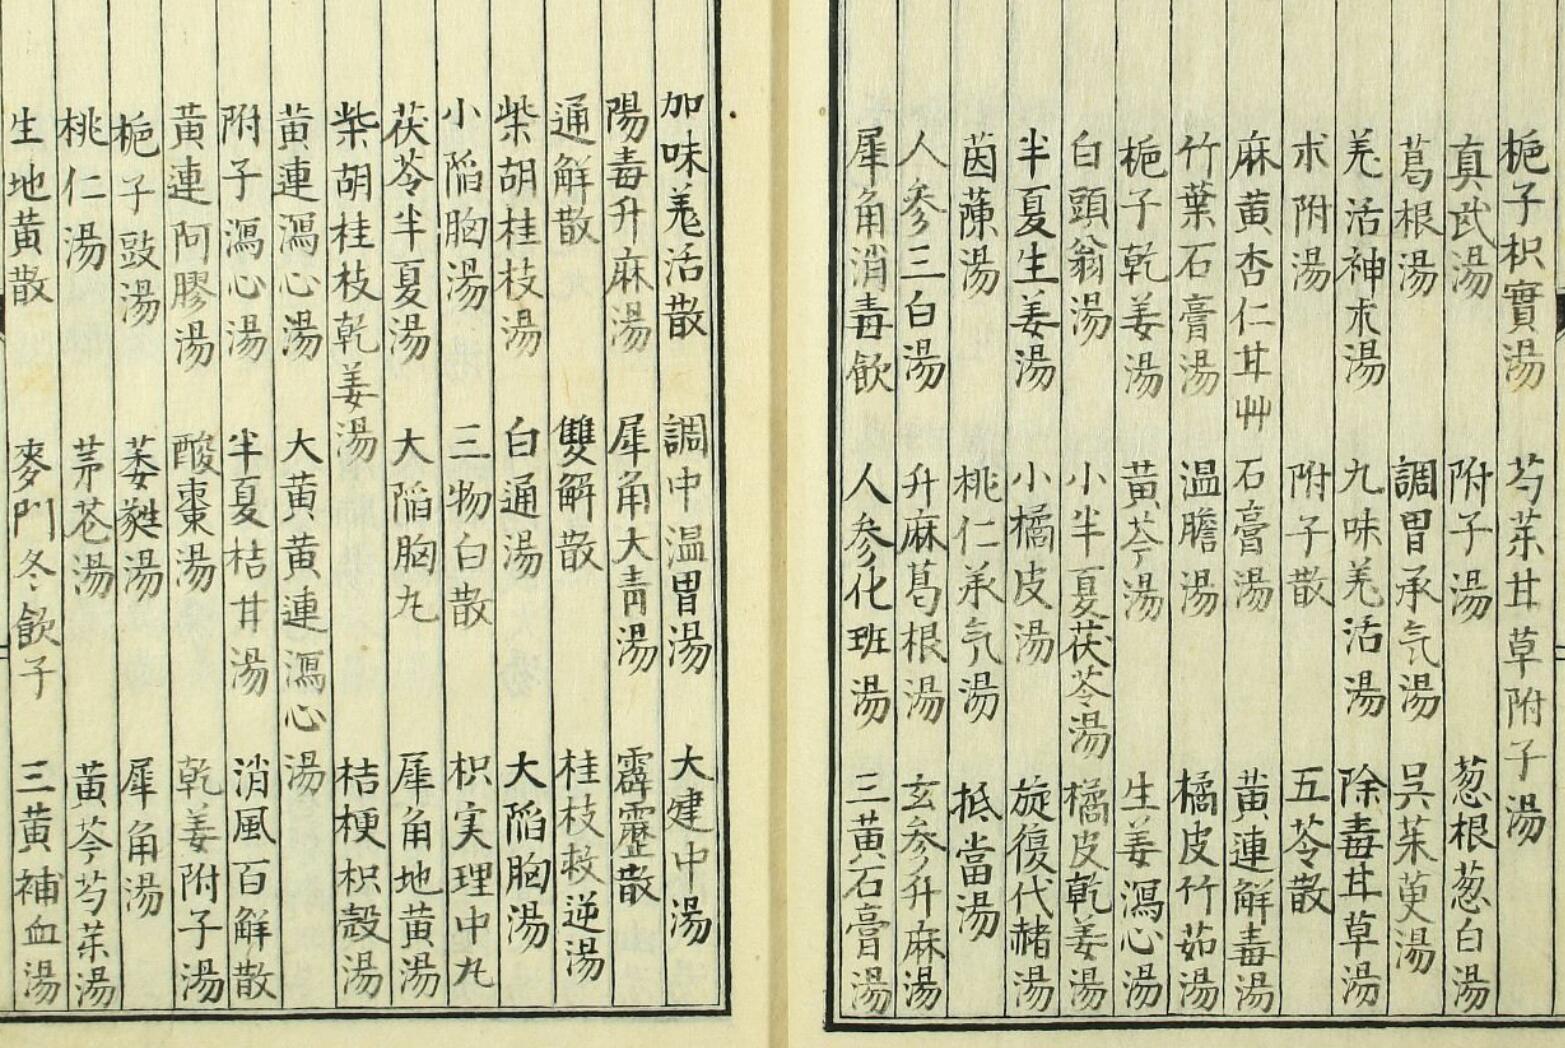 梔子枳實湯　芍茱甘草附子湯
真武湯　附子湯　葱根葱白湯
葛根湯　調胃承气湯　呉茱萸湯
羗活神朮湯　九味羗活湯　除毒甘草湯
朮附湯　附子散　五苓散
麻黄杏仁甘艸石膏湯　黄連觧毒湯
竹葉石膏湯　温膽湯　橘皮竹茹湯
梔子乾姜湯　黄芩湯　生姜瀉心湯
白頭翁湯　小半夏茯苓湯　橘皮乾姜湯
半夏生姜湯　小橘皮湯　旋復代赭湯
茵蔯湯　桃仁承气湯　抵當湯
人参三白湯　升麻葛根湯　玄参升麻湯
犀角消毒飲　人参化班湯　三黄石膏湯
加味羗活散　調中温胃湯　大建中湯
陽毒升麻湯　犀角大青湯　霹靂散
通觧散　雙解散　桂枝救逆湯
柴胡桂枝湯　白通湯　大陥胸湯
小陥胸湯　三物白散　枳実理中丸
茯苓半夏湯　大陥胸丸　犀角地黄湯
柴胡桂枝乾姜湯　桔梗枳殻湯
黄連瀉心湯　大黄黄連瀉心湯
附子瀉心湯　半夏桔甘湯　消風百觧散
黄連阿膠湯　酸棗湯　乾姜附子湯
梔子豉湯　萎蕤湯　犀角湯
桃仁湯　茅苍湯　黄芩芍茱湯
生地黄散　麥門冬飲子　三黄補血湯